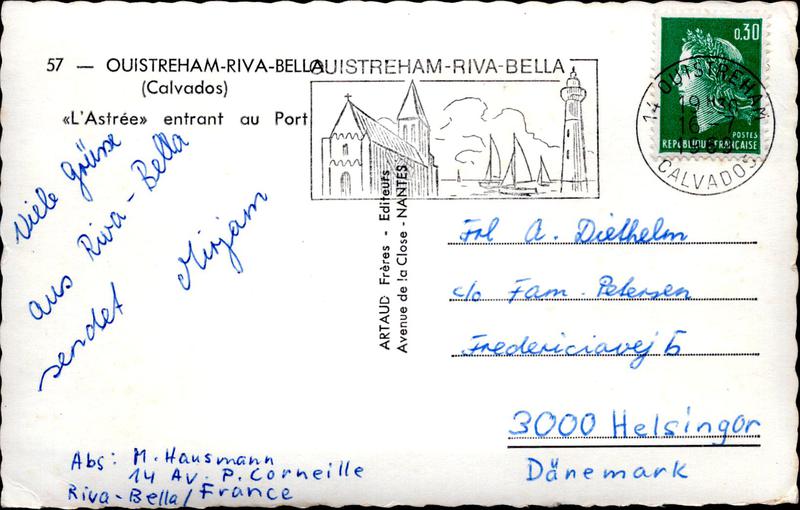 57 — OUISTREHAM-RIVA-BELLA
(Calvados)
«L'Astrée» entrant au Port
OUISTREHAM-RIVA-BELLA
0.30
POSTES
REPUBLIQUE FRANÇAISE
14 OUISTREHAM
CALVADOS
Viele Grüsse
aus Riva-Bella
sendet Mirjam
ARTAUD Frères - Editeurs
Avenue de la Close - NANTES
Frl A. Diethelm
c/o Fam. Petersen
Fredericiavej 5
3000 Helsingör
Dänemark
Abs: M. Hausmann
14 Av. P. Corneille
Riva-Bella/France